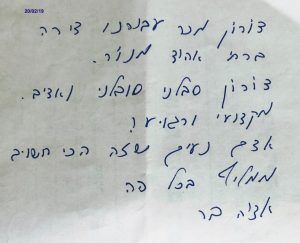 20/02/19
דורון מכר עבורנו דירה
ברח׳ אהוד מנור.
דורון סבלני סובלני ואדיב.
מקצועי ורגוע!
אדם נעים וזה הכי חשוב
ממליץ בכל פה
בר